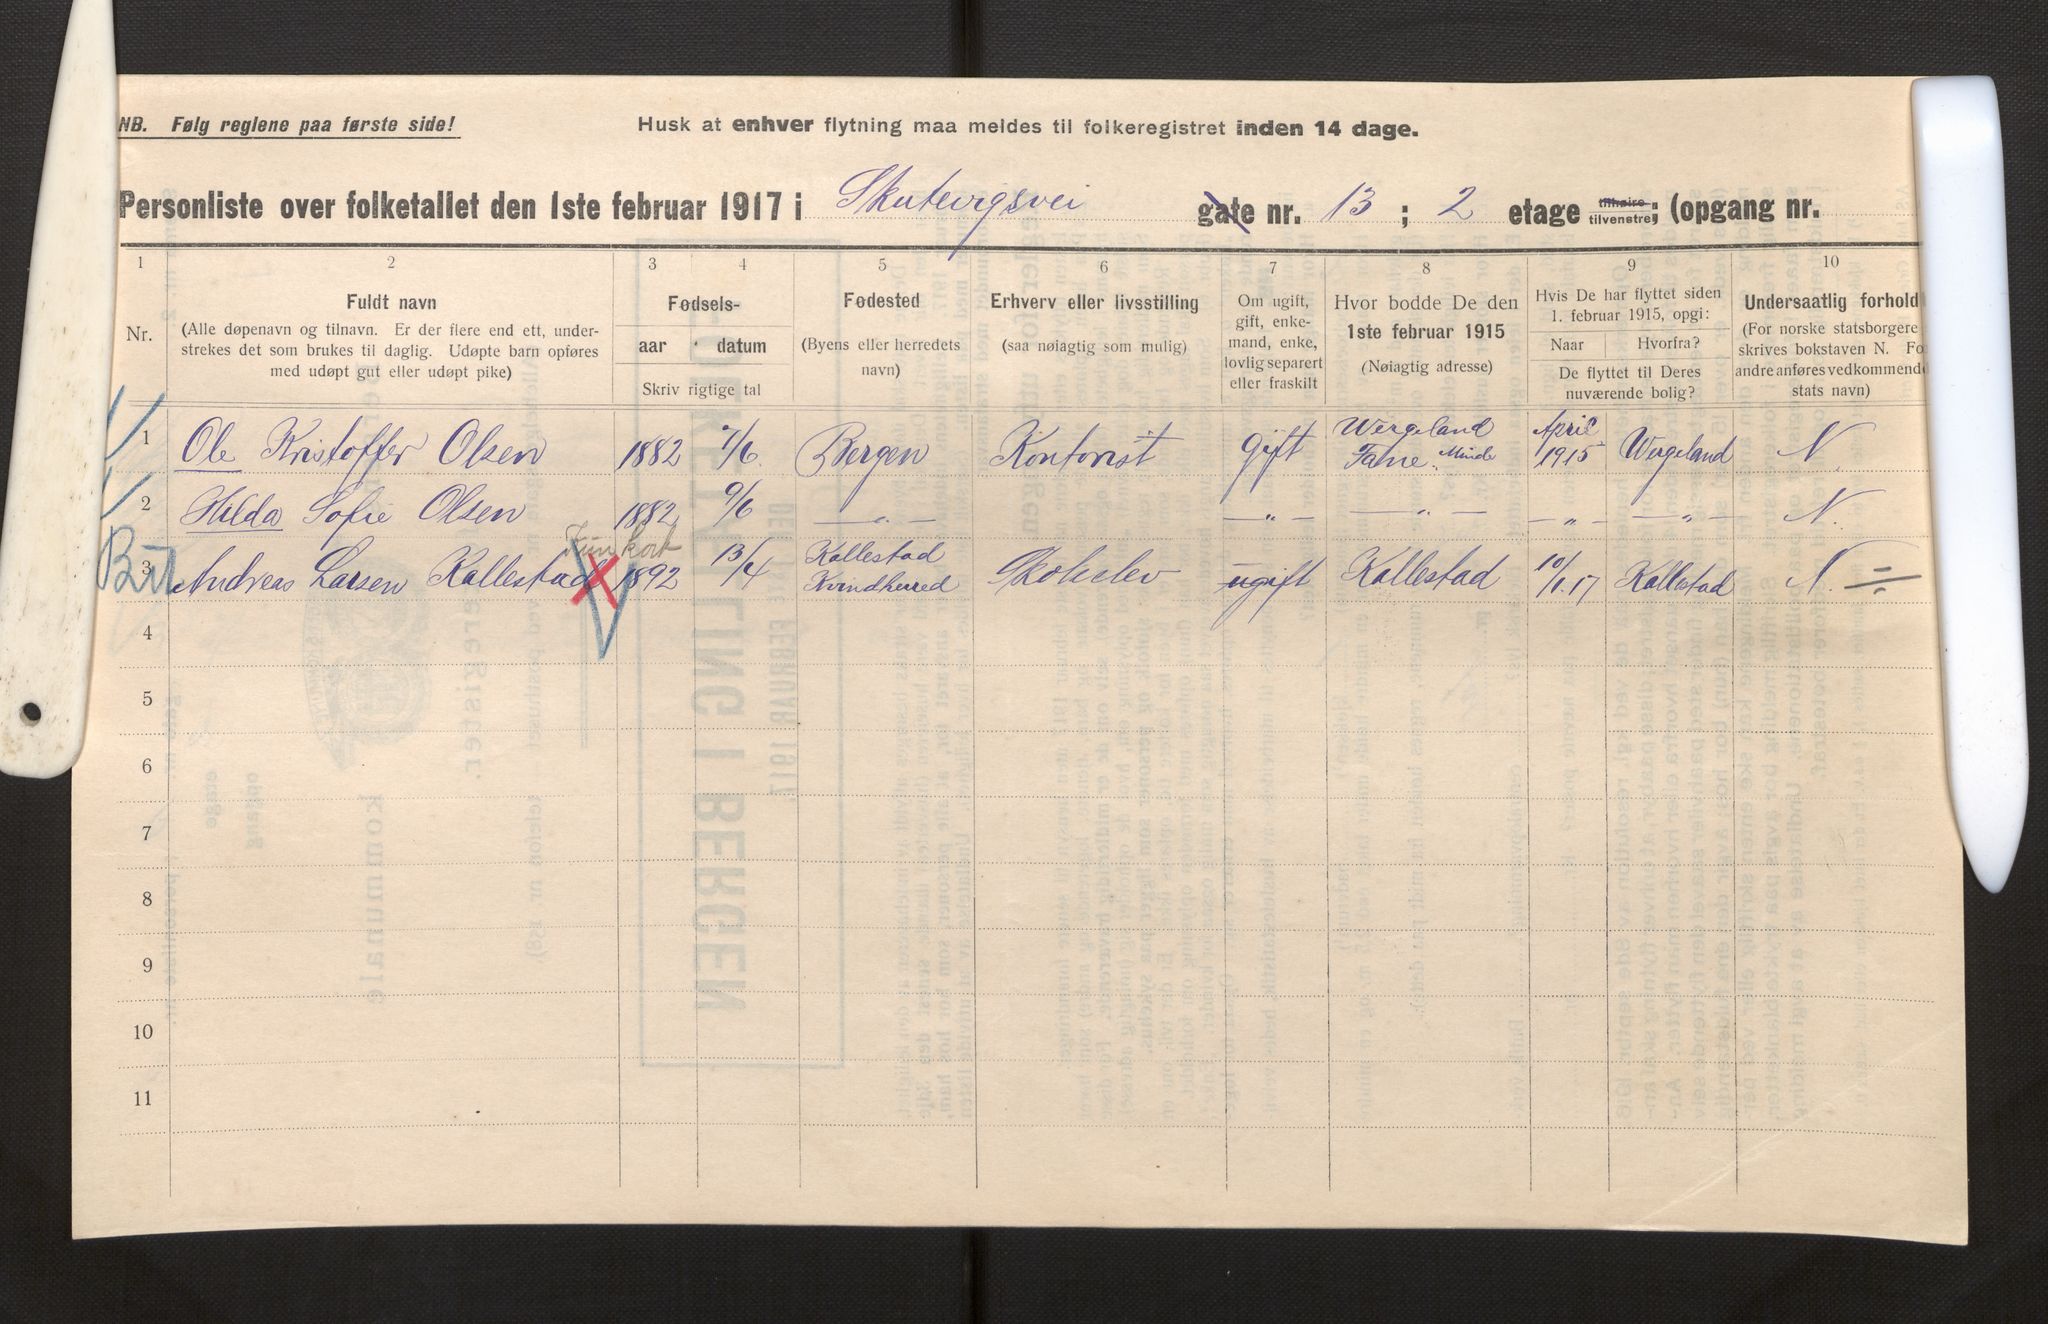 NB. Følg reglene paa første side!
Husk at enhver flytning maa meldes til folkeregistret inden 14 dage.
Personliste over folketallet den 1ste februar 1917 i Skutevigsvei gate nr. 13 ; 2 etage tilhøire tilvenstre; (opgang nr.
1 2 3 4 5 6 7 8 9 10
Nr.
Fuldt navn
(Alle døpenavn og tilnavn. Er der flere end ett, under-
strekes det som brukes til daglig. Udøpte barn opføres
med udøpt gut eller udøpt pike)
Fødsels-
aar datum
Skriv rigtige tal
Fødested
(Byens eller herredets
navn)
Erhverv eller livsstilling
(saa nøiagtig som mulig)
Om ugift,
gift, enke-
mand, enke,
lovlig separert
eller fraskilt
Hvor bodde De den
1ste februar 1915
(Nøiagtig adresse)
Hvis De har flyttet siden
1. februar 1915, opgi:
Naar Hvorfra?
De flyttet til Deres
nuværende bolig?
Undersaatlig forhold
(For norske statsborgere
skrives bokstaven N. Fo
andre anføres vedkommende
stats navn)
1 Ole Kristoffer Olsen 1882 7/6 Bergen Kontorist gift Wergeland Fane Minde April 1915 Wergeland N.
2 Hilda Sofie Olsen 1882 9/6 — „ — — „ — — „ — — „ — — „ — N.
3 Andreas Larsen Kallestad 1892 13/4 Kallestad Kvindherred Skoleelev ugift Kallestad 10/1.17 Kallestad N.
4
5
6
7
8
9
10
11